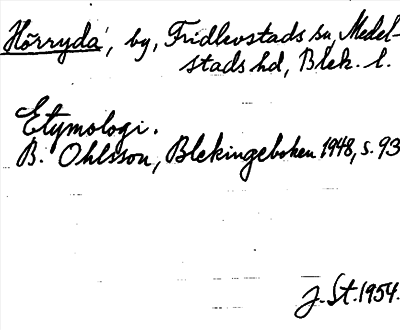 Hörryda, by, Fridlevstads sn, Medel-
stads hd, Blek. l.
Etymologi.
B. Ohlsson, Blekingeboken 1948, s. 93
J. St. 1954.